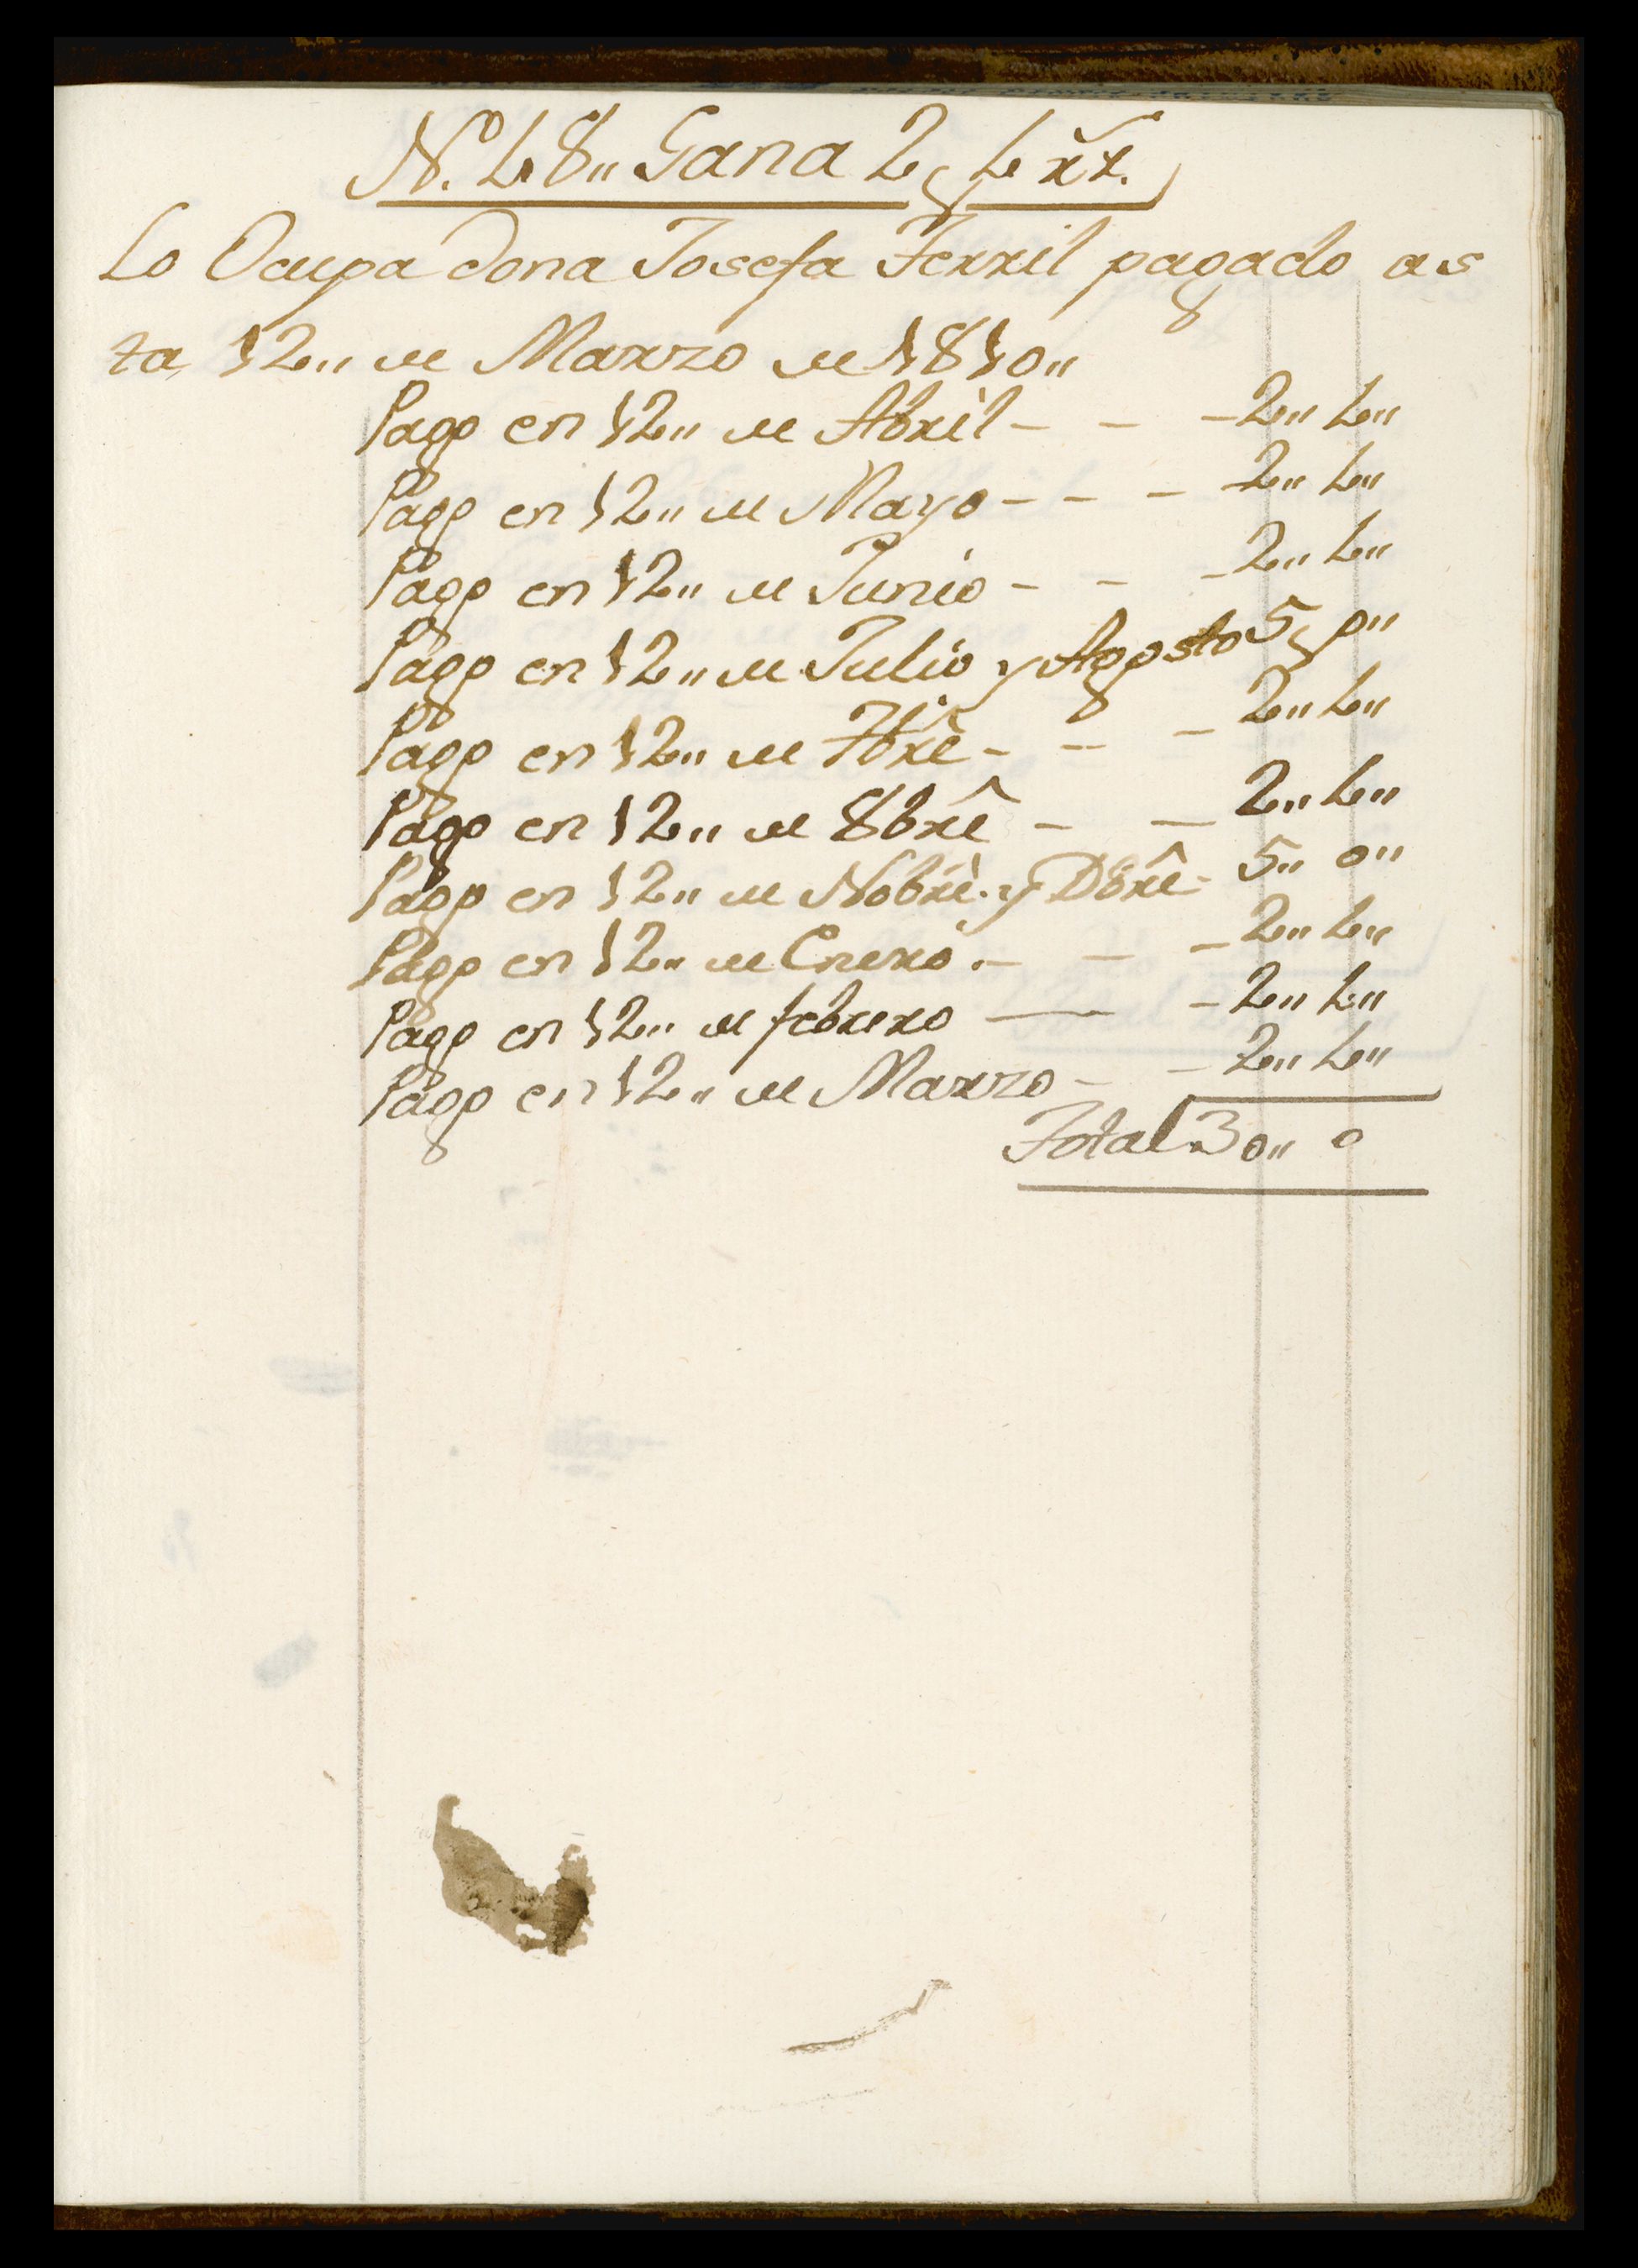 N.º 48,, Gana 2 p 4 rr.ˢ
Lo Ocupa dona Josefa Ferril pagado as
ta, 12,, de Marzo de 1810,,
Pago en 12,, de Abril - - - 2,, 4,,
Pago en 12,, de Mayo - - - 2,, 4,,
Pago en 12,, de Junio - - - 2,, 4,,
Pago en 12,, de Julio y Agosto 5 p 0,,
Pago en 12,, de 7brê - - - 2,, 4,,
Pago en 12,, de 8brê - - 2,, 4,,
Pago en 12,, de Nobrê. y D8rê - 5,, 0,,
Pago en 12,, de Enero. - - - 2,, 4,,
Pago en 12,, de febrero — - 2,, 4,,
Pago en 12,, de Marzo - - 2,, 4,,
Total 30,, 0